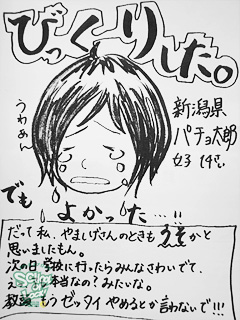 びっくりした。
うわぁん
新潟県
パチョ太郎
女子 14才。
でも
よかった…!!
だって私、やましげさんのときもうそかと
思いましたもん。
次の日 学校に行ったらみんなさわいでて、
え 本当なの?みたいな。
教頭 もうゼッタイ やめるとか言わないで!!!